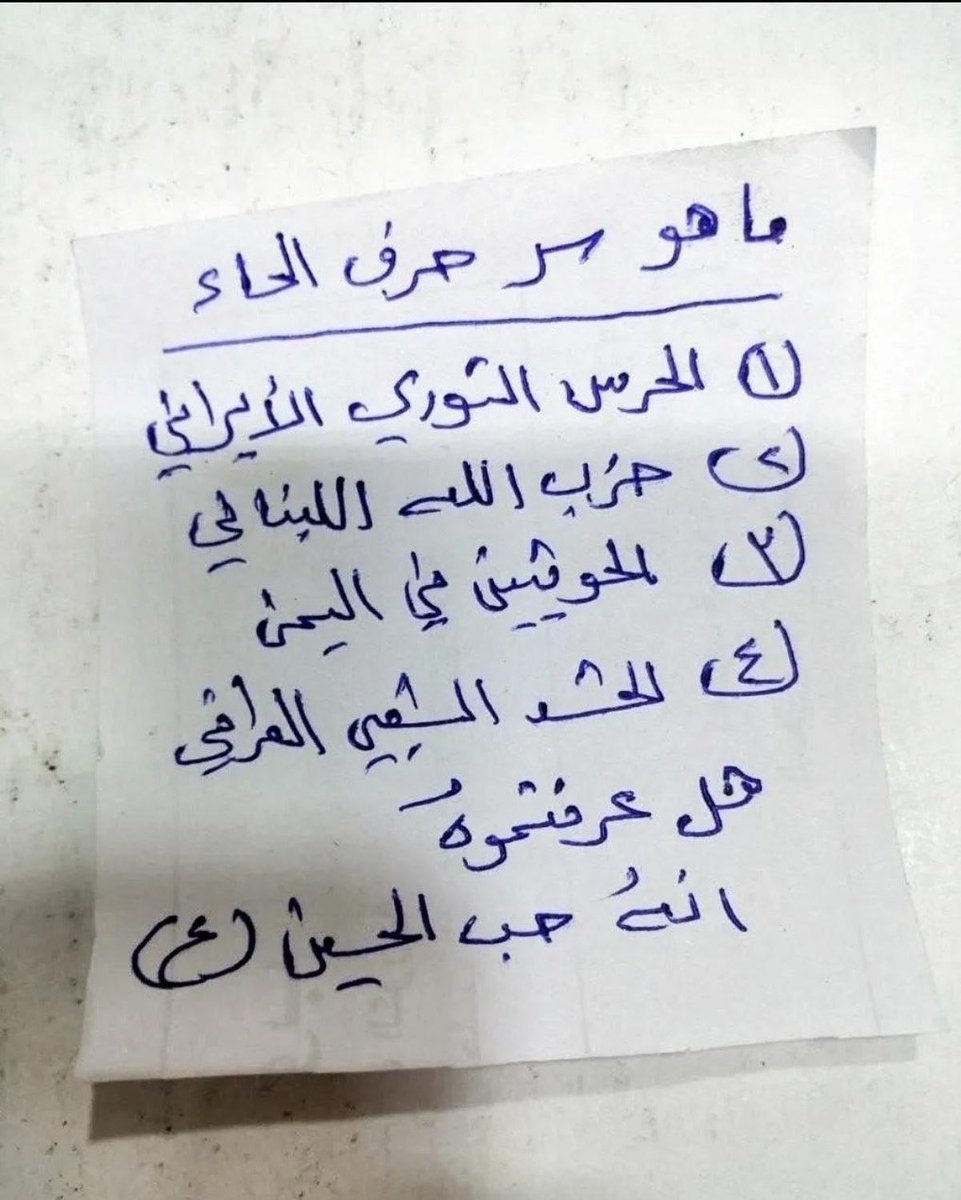 ما هو سر حرف الحاء
١ الحرس الثوري الأيراني
٢ حزب الله اللبناني
٣ الحوثيين في اليمن
٤ الحشد الشعبي العراقي
هل عرفتموهُ
انهُ حب الحسين (ع)